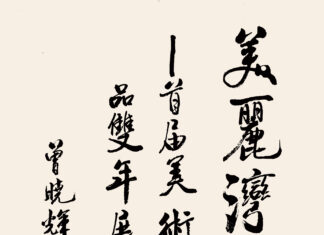 美麗灣
—首届美術
品雙年展
曾曉輝